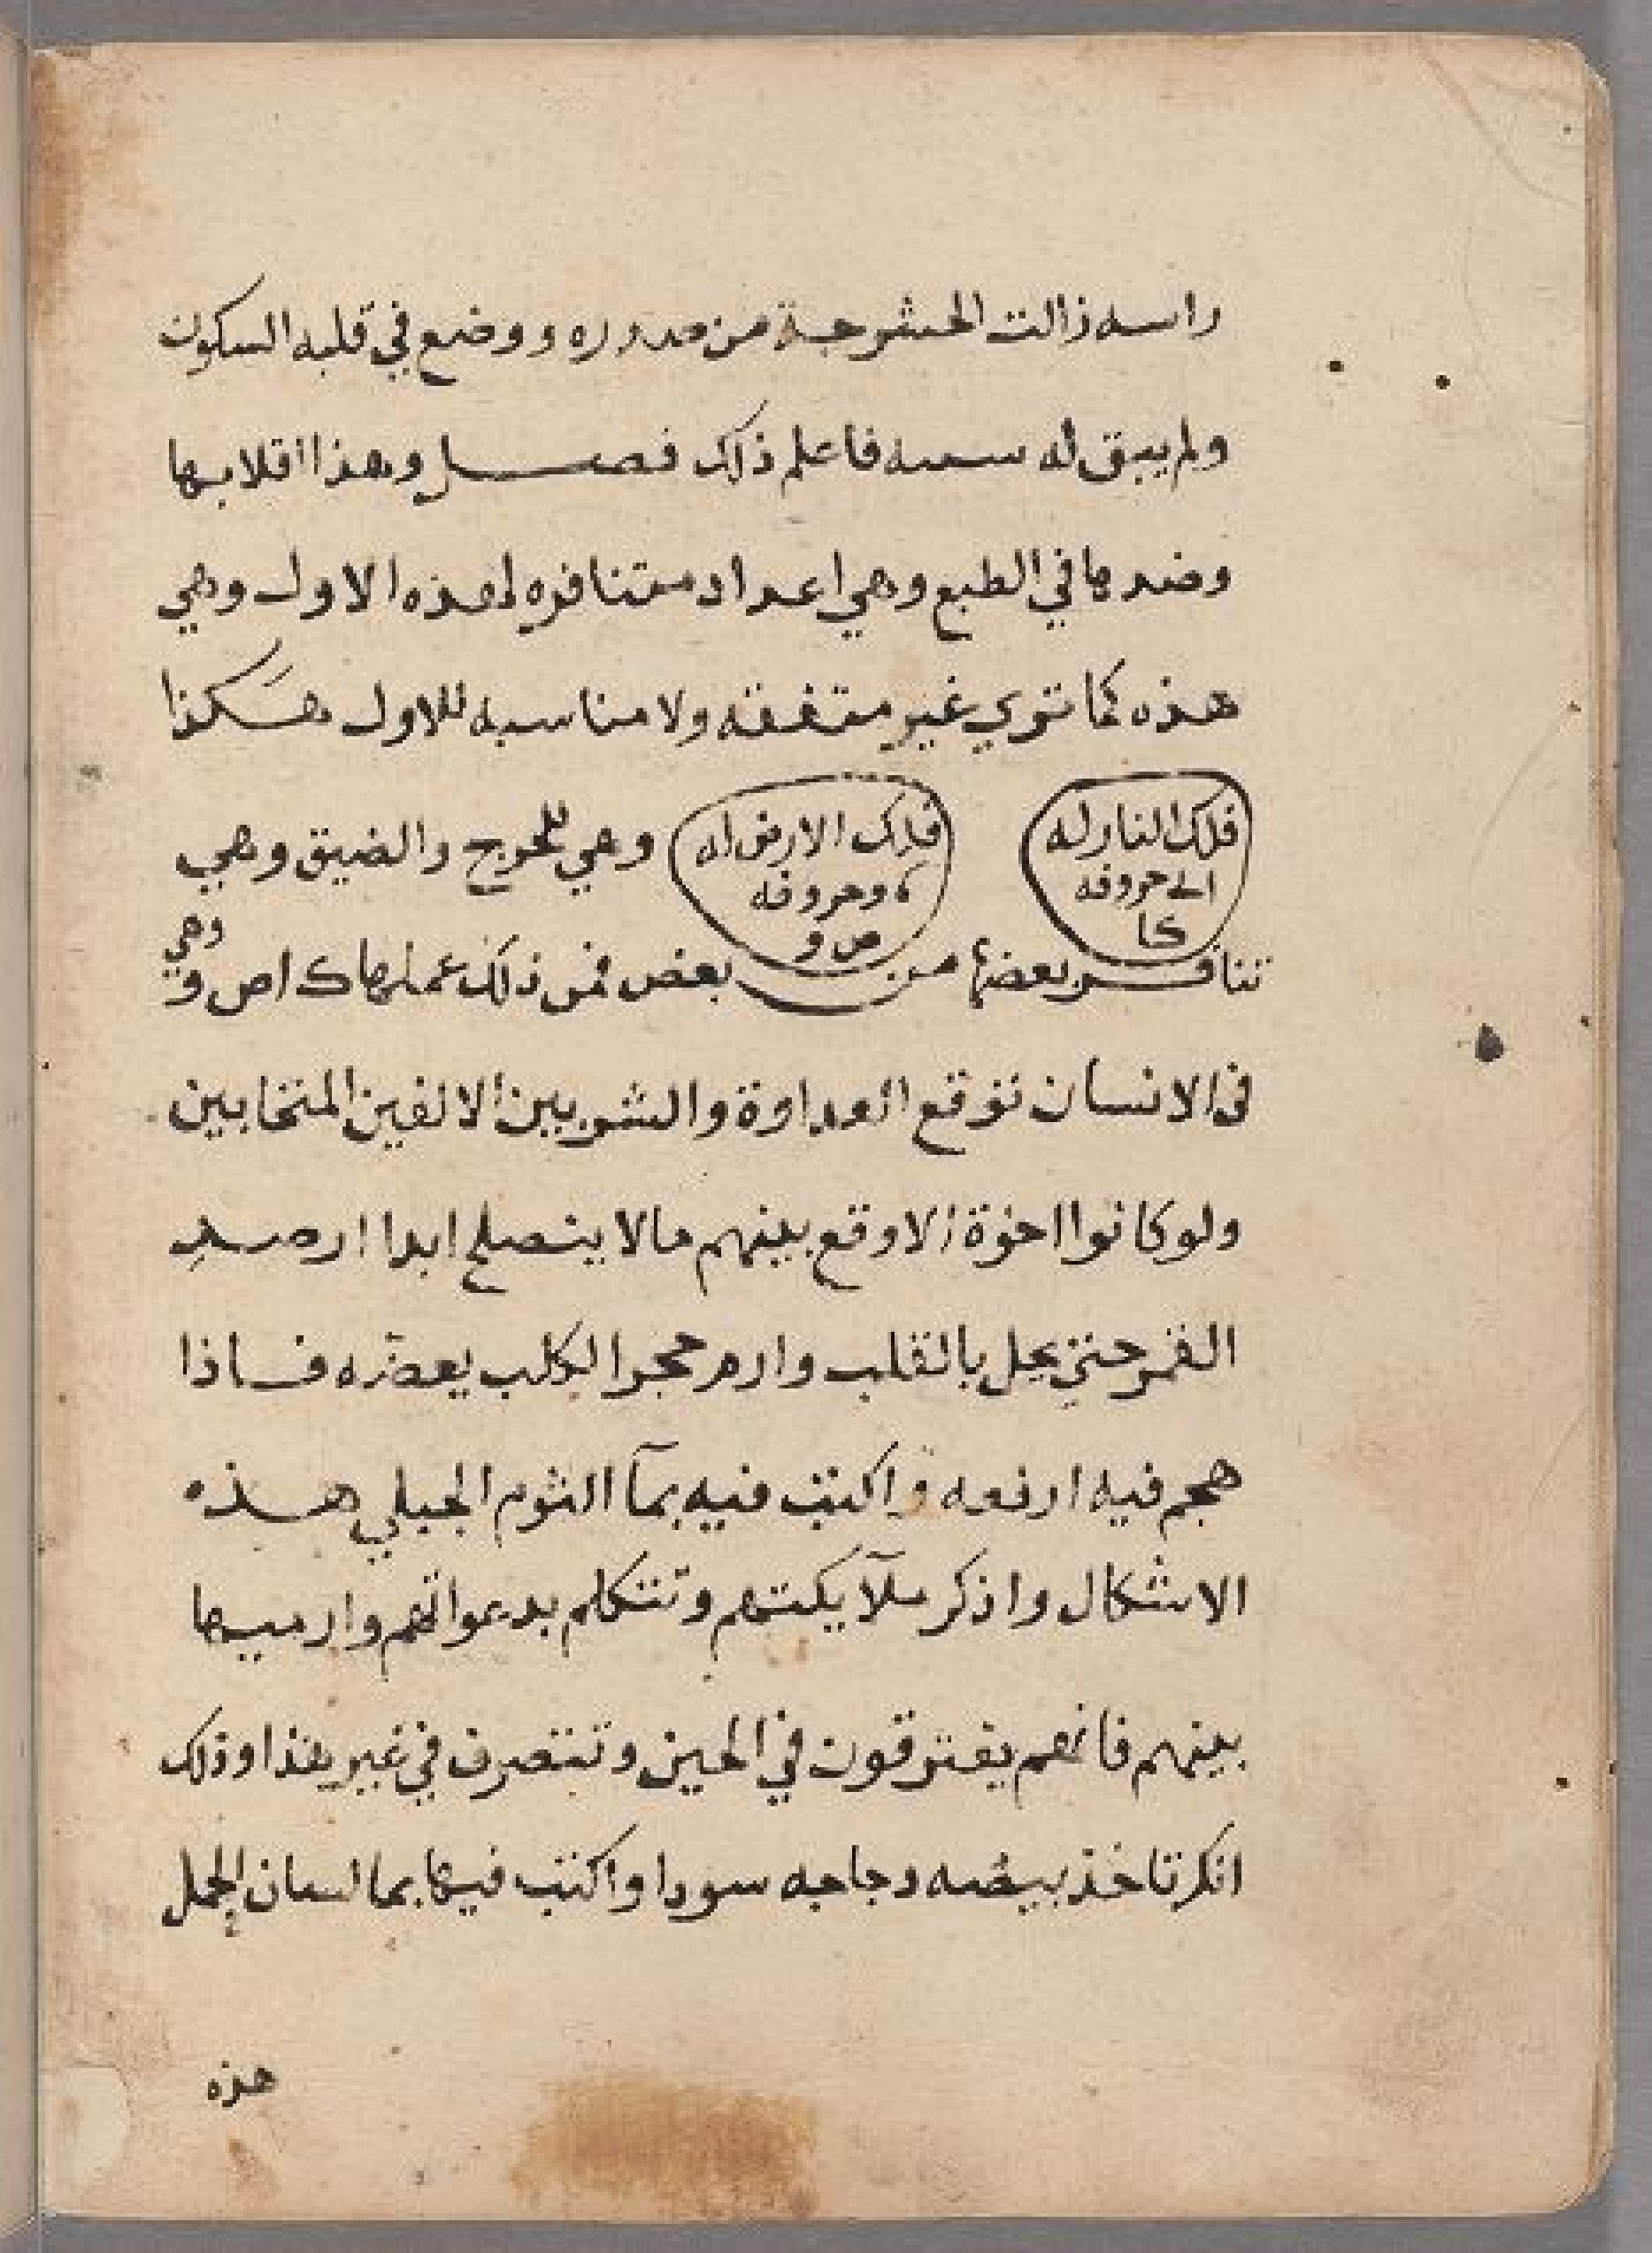 راسه زالت الحشرجة من صدوره ووضع في قلبه السكون
ولم يبق له سمه فاعلم ذلك فصل وهذا اقلابها
وضدها في الطبع وهي اعداد متنافره لهذه الاول وهي
هذه كما تري غير متفقه ولا مناسبه للاول هكذا
فلك النار له
حروفه
كا
فلك الارض له
وحروفه
ص و
وهي للحرج والضيق وهي
تنافر بعضها من بعض فمن ذلك عملها ك ا ص و
وهي
في الانسان توقع العداوة والشر بين الالفين المتحابين
ولو كانوا اخوة الا وقع بينهم ما لا ينصلح ابدا ارصد
القمر حتي يحل بالقلب وارم حجر الكلب يعضه فاذا
هجم فيه ارفعه واكتب فيه بمآ الثوم الجبلي هذه
الاشكال واذكر ملآيكتهم وتتكلم بدعواتهم وارميها
بينهم فانهم يفترقون في الحين وتتصرف في غير هذا وذلك
انك تاخذ بيضه دجاجه سودا واكتب فيها بما لسان الجمل
هذه